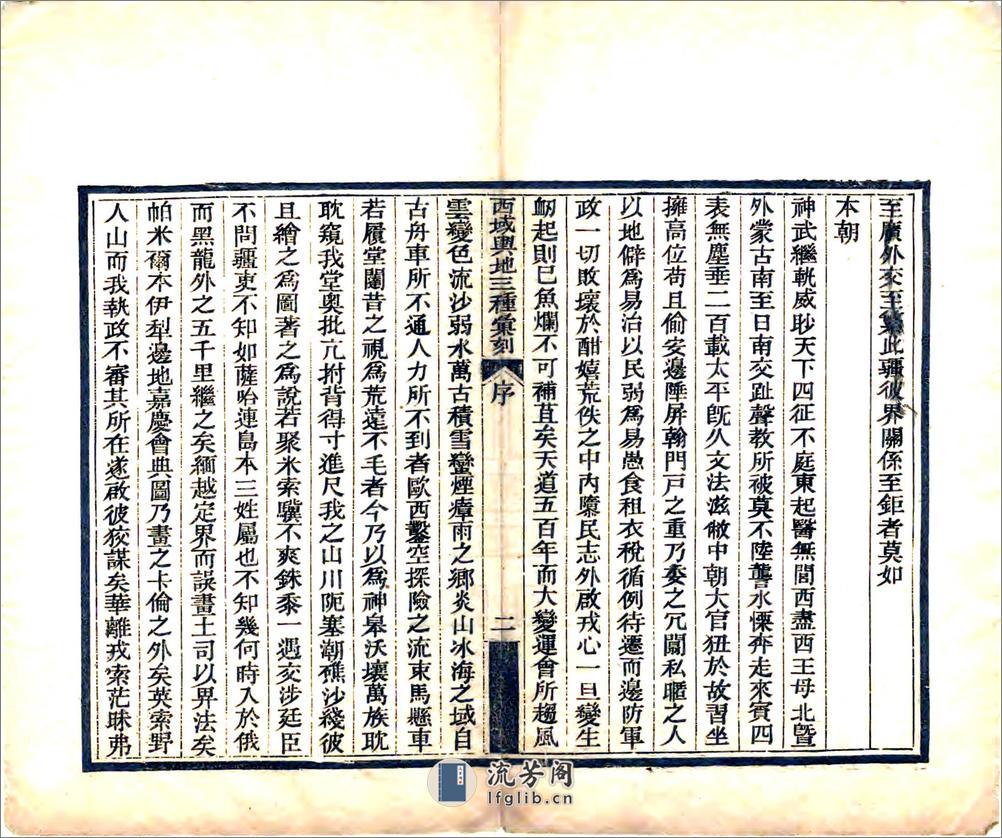 至廣外交至繁此疆彼界關係至鉅者莫如
本朝
神武繼軌威聆天下四征不庭東起醫無閭西盡西王母北曁
外蒙古南至日南交趾聲教所被莫不陸讋水慄奔走來賓四
表無塵垂二百載太平旣久文法滋敝中朝大官狃於故習坐
擁高位苟且偷安邊陲屛翰門戸之重乃委之冗闒私暱之人
以地僻爲易治以民弱爲易愚食租衣稅循例待遷而邊防軍
政一切敗壞於酣嬉荒佚之中內隳民志外啟戎心一旦變生
蚏起則已魚爛不可補苴矣天道五百年而大變運會所趨風
西域輿地三種彙刻 序 二
雲變色流沙弱水萬古積雪蠻煙瘴雨之鄉炎山冰海之域自
古舟車所不通人力所不到者歐西鑿空探險之流束馬懸車
若履堂闥昔之視爲荒遠不毛者今乃以爲神皋沃壤萬族耽
耽窺我堂奧批亢拊背得寸進尺我之山川阨塞潮礁沙綫彼
且繪之爲圖著之爲說若聚米索驥不爽銖黍一遇交涉廷臣
不問疆吏不知如薩哈連島本三姓屬也不知幾何時入於俄
而黑龍外之五千里繼之矣緬越定界而誤畫土司以界法矣
帕米爾本伊犁邊地嘉慶會典圖乃畫之卡倫之外矣英索野
人山而我執政不審其所在遂啟彼狡謀矣華離戎索茫昧弗
流芳阁
lfglib.cn